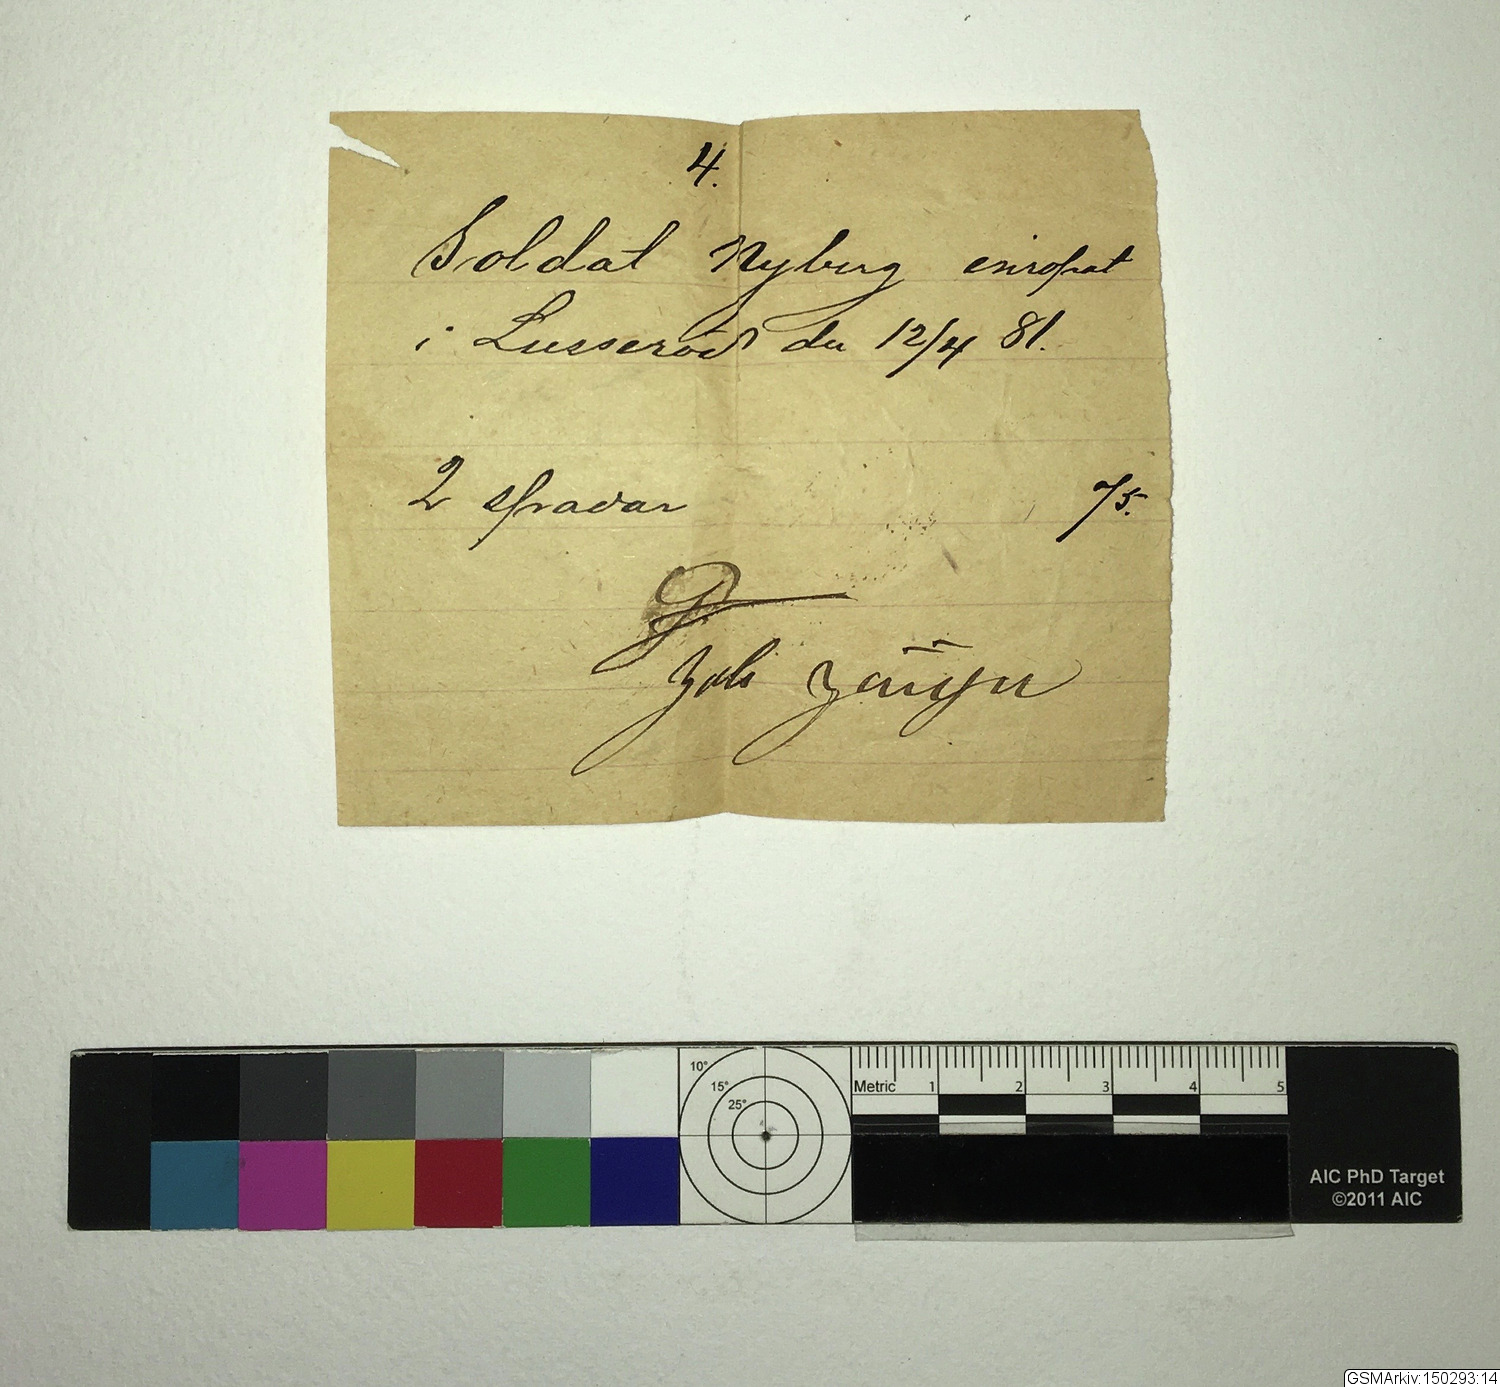 4.
Soldat Nyberg inropat
i Lusseröd den 12/4 81.
2 spadar 75.
10°
15°
25°
Metric 1 2 3 4 5
AIC PhD Target
©2011 AIC
GSMArkiv:150293:14